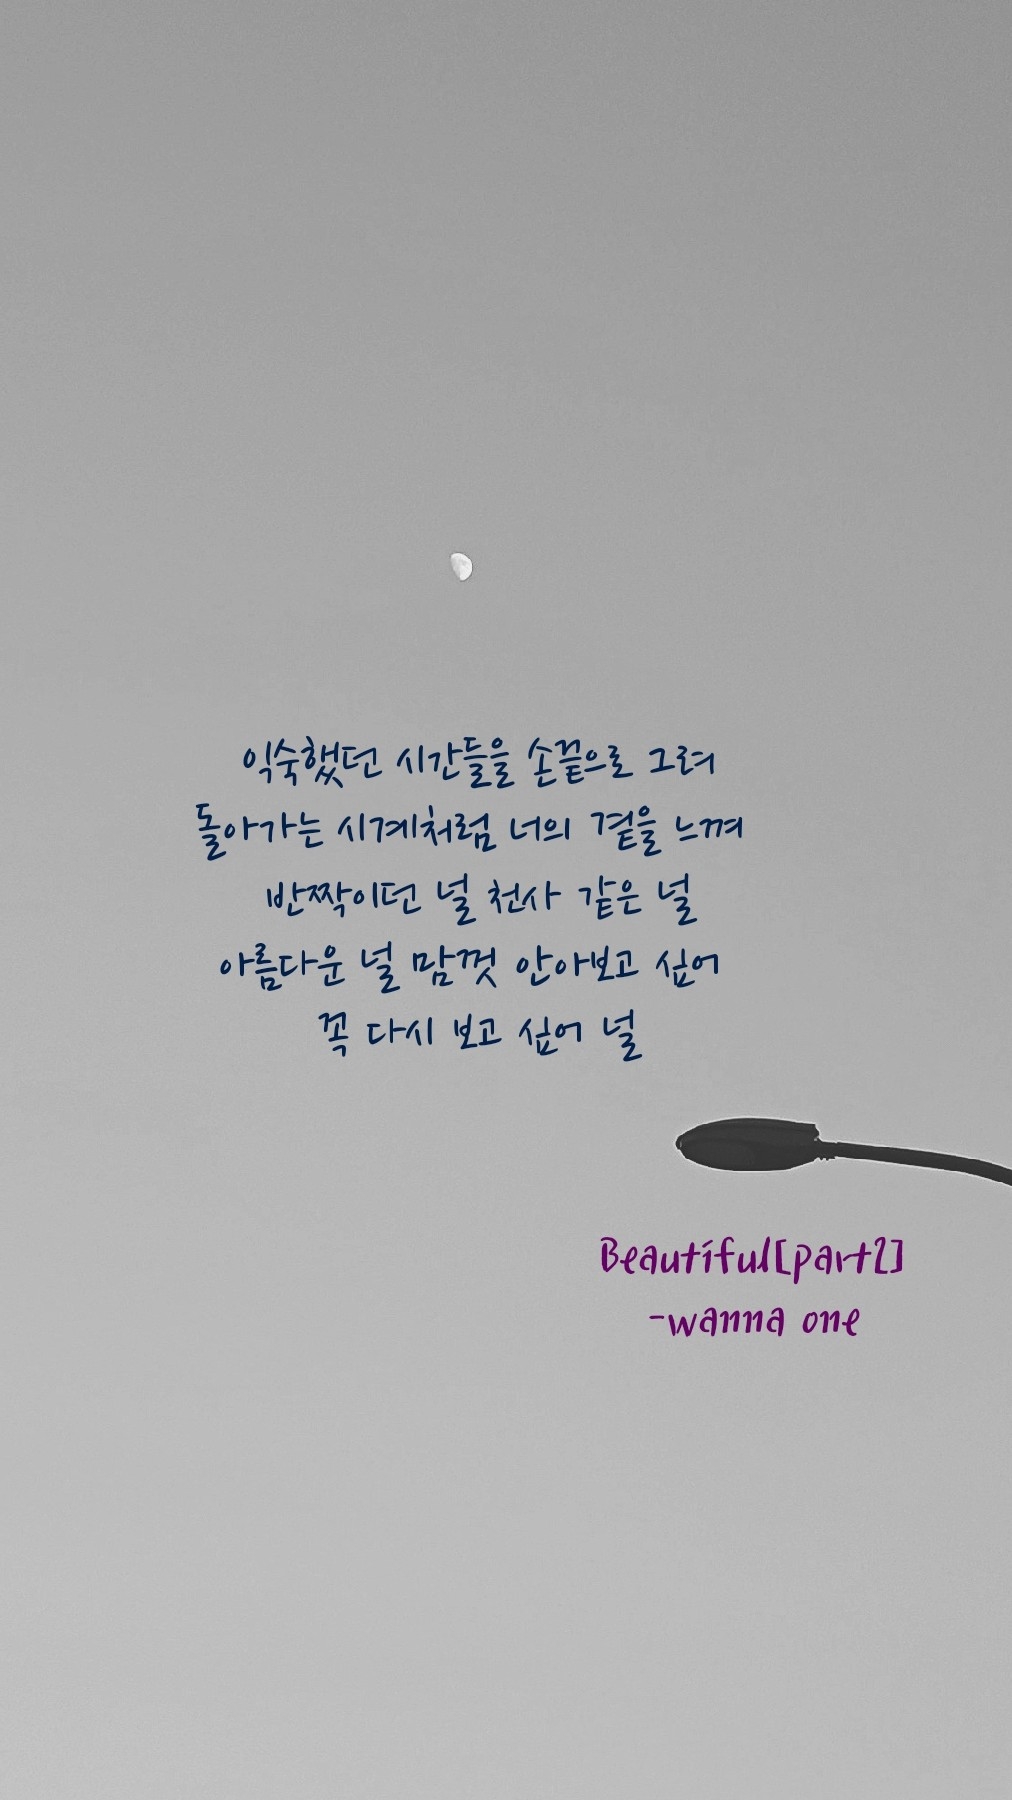 익숙했던 시간들을 손끝으로 그려
돌아가는 시계처럼 너의 곁을 느껴
반짝이던 널 천사 같은 널
아름다운 널 맘껏 안아보고 싶어
꼭 다시 보고 싶어 널
Beautiful[part2]
-wanna one